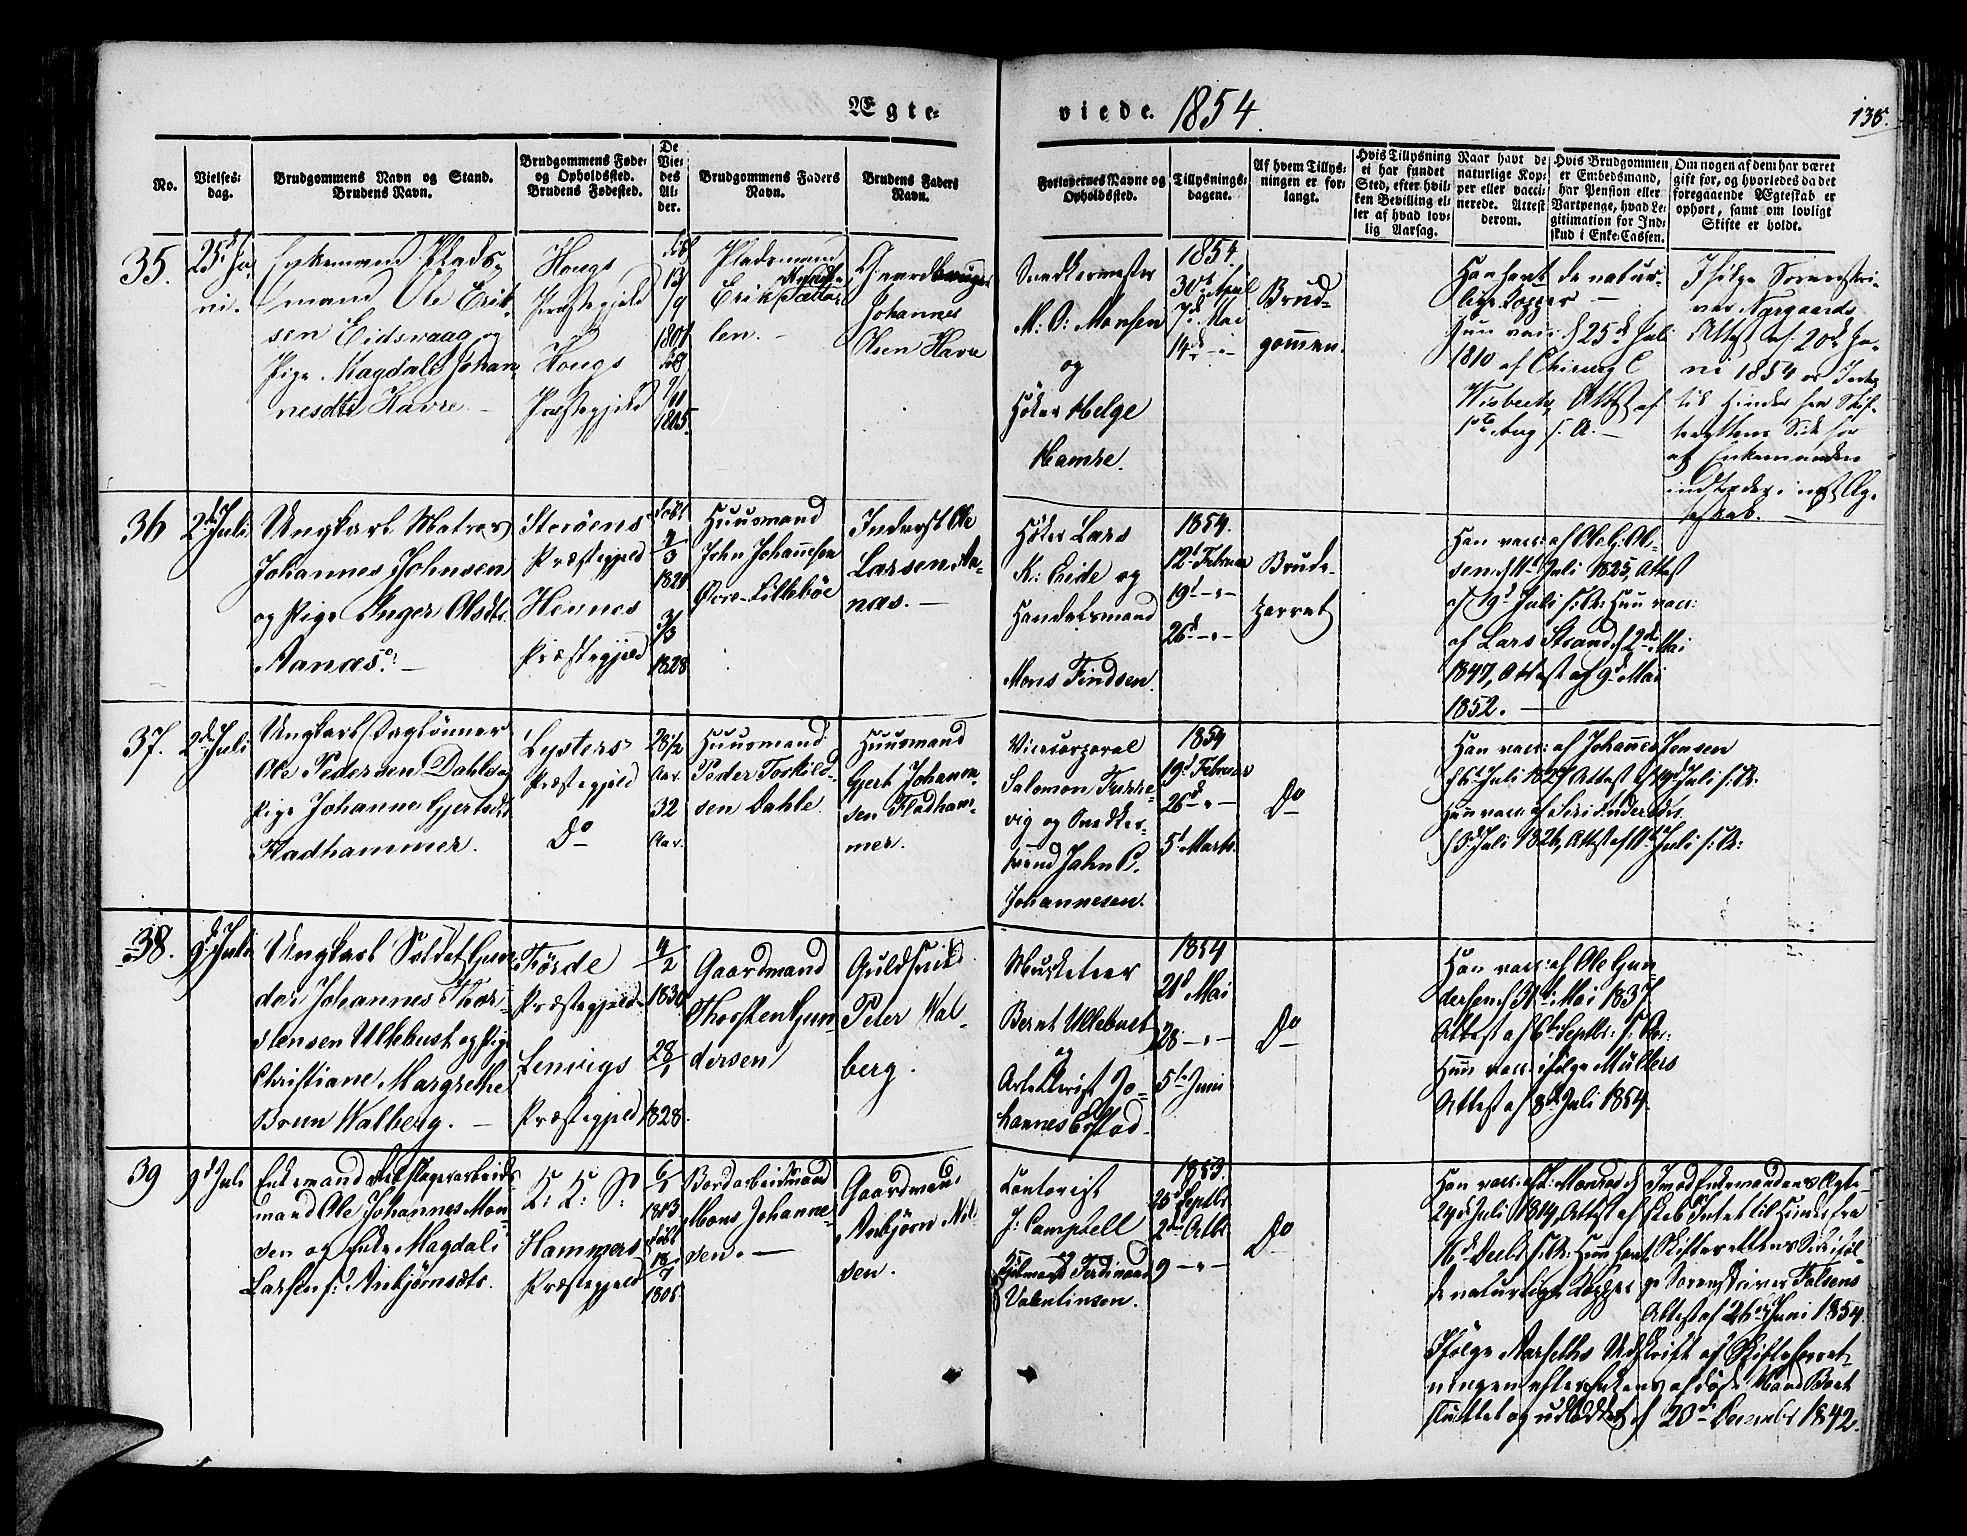 Ægte-
viede. 1854.
135.
No.
Vielses-
dag.
Brudgommens Navn og Stand.
Brudens Navn.
Brudgommens Føde-
og Opholdssted.
Brudens Fødested.
De
Vie-
des
Al-
der.
Brudgommens Faders
Navn.
Brudens Faders
Navn.
Forlovernes Navne og
Opholdssted.
Tillysnings-
dagene.
Af hvem Tillys-
ningen er for-
langt.
Hvis Tillysning
ei har fundet
Sted, efter hvil-
ken Bevilling el-
ler af hvad lov-
lig Aarsag.
Naar havt de
naturlige Kop-
per eller vacci-
nerede. Attest
derom.
Hvis Brudgommen
er Embedsmand,
har Pension eller
Vartpenge, hvad Le-
gitimation for Ind-
skud i Enke-Cassen.
Om nogen af dem har været
gift før, og hvorledes da det
foregaaende Ægteskab er
ophørt, samt om lovligt
Skifte er holdt.
35.
25d Ju-
ni.
Enkemand Plads-
mand Ole Erik-
sen Eidsvaag og
Pige Magdali Johan-
nesdtr Havre.
Hougs
Præstegjeld
Hougs
Præstegjeld
født
13/9
1801
født
9/11
1805.
Pladsmand
Erik
len.
Gaardbruger
Johannes
Olsen Havre
Snedkermester
M: O: Monsen
og
Høker Helge
Hamre.
1854.
30te April
7d Mai
14d - " -
Brud-
gommen.
Han havt de natur-
lige Kopper
Hun vacc. d 25de Juli
1810 af Chirurg C
Wisbech, Attest af
1ste Aug s. A.
Ifølge Sorenskri-
ver Nørgaards
Attest af 20de Ju-
ni 1854 er Intet
til Hinder fra Skif-
terettens Side for
at Enkemanden
indtræder i nyt Æg-
teskab.
36
2d Juli
Ungkarl Matros
Johannes Johnsen
og Pige Inger Olsdtr
Aanæs.
Storøens
Præstegjeld
Hennes
Præstegjeld
født
4/3
1821
3/3
1828
Huusmand
John Johannesen
Øvre-Lillebøe
Inderst Ole
Larsen Aa-
næs.
Høker Lars
K: Eide og
Handelsmand
Mons Findsen.
1854.
12d Februar
19d - " -
26d - " -
Brude-
parret
Han vacc: af Ole G. Ol-
sen d 11te Juli 1825, Attest
af 19d Juli s: A: Hun vacc:
af Lars Strand d 2den Mai
1847, Attest af 9d Mai
1852.
37.
2d Juli
Ungkarl Daglønner
Ole Pedersen Dahle og
Pige Johanne Gjertsdtr
Fladhammer.
Lysters
Præstegjeld
Do
28 1/2
Aar.
32
Aar.
Huusmand
Peder Torkild-
sen Dahle
Huusmand
Gjert Johann-
sen Fladham-
mer.
Vicecorporal
Salomon Furre-
vig og Snedker-
svend Jahn C.
Johannesen.
1854
19d Februar
26d - " -
5d Marts.
Do
Han vacc: af Johannes Jensen
d 6d Juli 1827 Attest af 19d Juli s: A.
Hun vacc: af Siri Endersdtr
d 3d Juli 1826, Attest af 11te Juli s: A:
38.
9d Juli
Ungkarl Soldat Gun-
der Johannes Thor-
stensen Ullebust og Pige
Christiane Margrethe
Brun Walberg.
Førde
Præstegjeld
Lenvigs
Præstegjeld
4/2
1830
28/1
1828.
Gaardmand
Thorsten Gun-
dersen
Guldsmed
Peter Wal-
berg.
Musketeer
Bernt Ullebust
og
Artillerist Jo-
hannes Erstad
1854
21d Mai
28 - " -
5te Juni
Do
Han vacc: af Ole Gun-
dersen d 31te Mai 1837
Attest af 6te Septbr: s. A:
Hun vacc: ifølge Müllers
Attest af 8d Juli 1854.
39
9d Juli
Enkemand
mand Ole Johannes Mon-
sen og Enke Magdali
Larsen f: Anbjørnsdtr.
K: K: S:
Hammers
Præstegjeld
6/1
1813
født
18/7
1805
Bordarbeidmand
Mons Johanne-
sen.
Gaardmand
Anbjørn Nil-
sen.
Contorist
J: Campbell
og
Ferdinand
Valentinsen.
1853.
25d Septbr
2den Octbr
9 - " -
Do
Han vacc: af L: Monrad d
29d Juli 1814, Attest af
16d Decbr s: A: Hun havt
de naturlige Kopper
Imod Enkemandens Ægte-
skab Intet til Hinder fra
Skifterettens Side iføl-
ge Sorenskriver Falsens
Attest af 26de Juni 1854.
Ifølge Aarseths Udskrift af Skifteforret-
ningen efter Enkens afdøde Mand Boet
sluttet og udloddet d 20de December 1842.